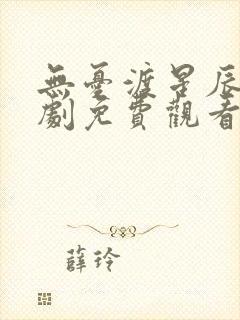 無憂渡星辰
劇免費觀看
薛玲